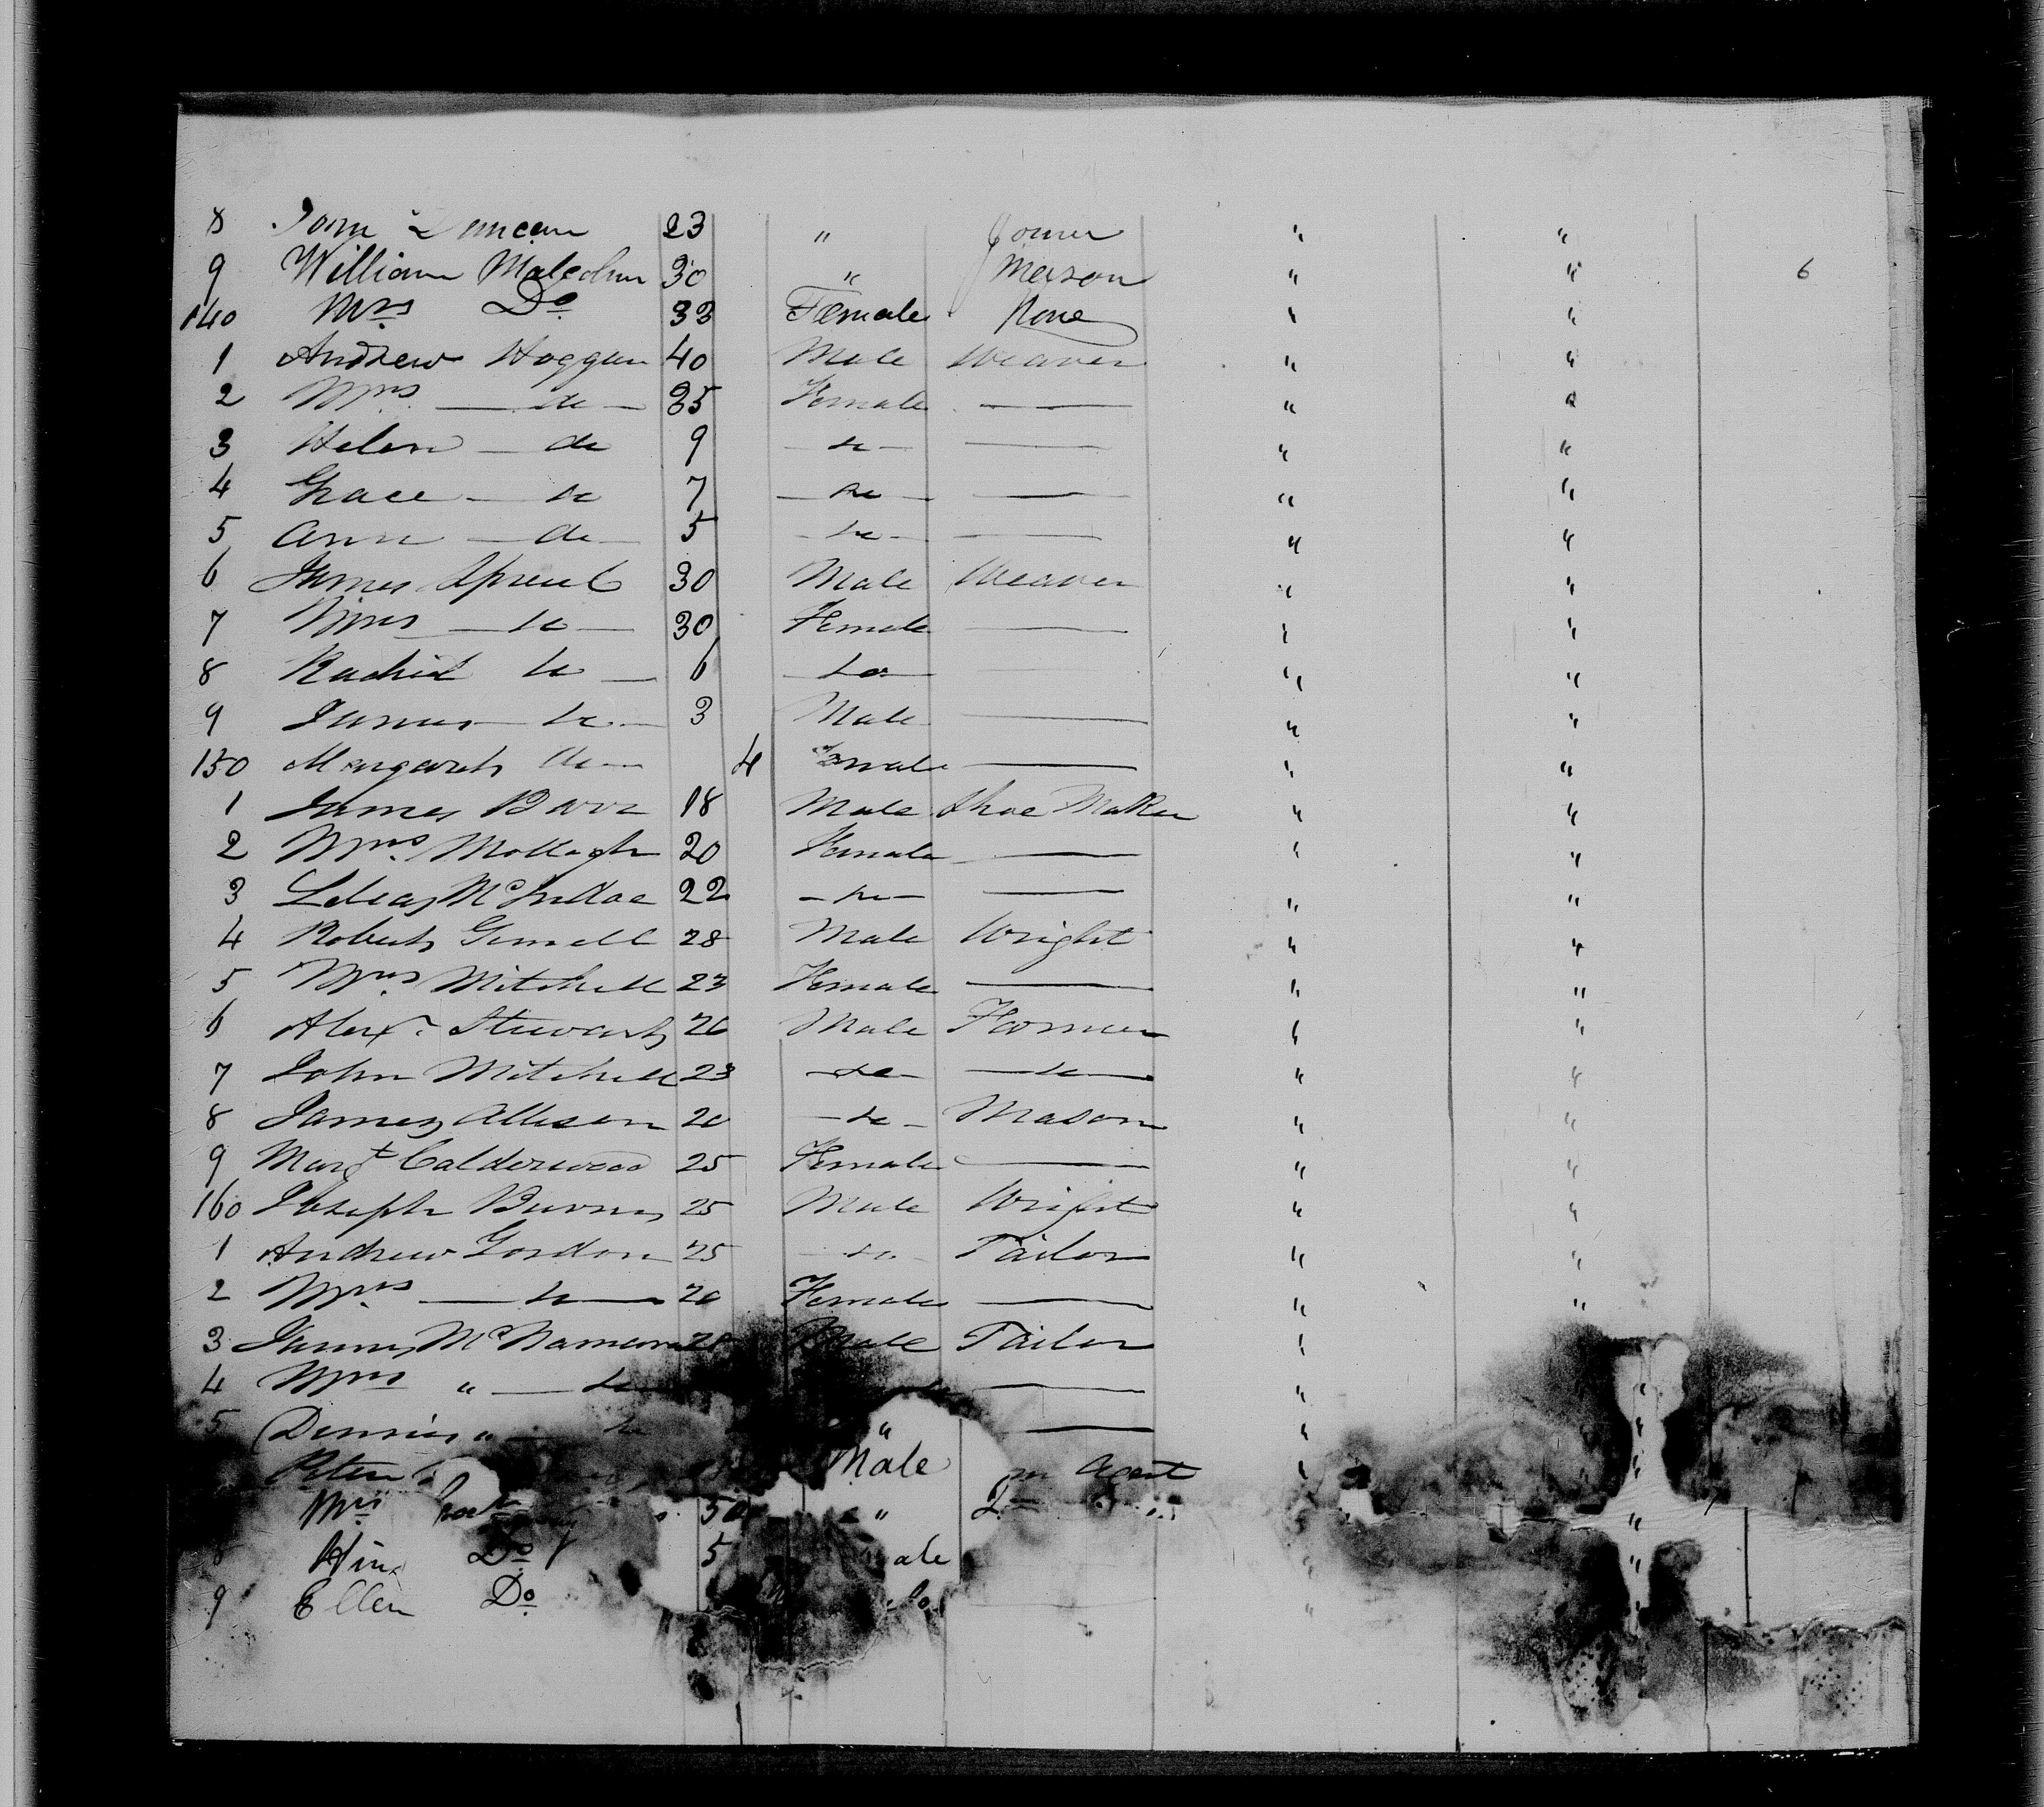 8 John Duncan 23 " Joiner " "
9 William Malcolm 30 " Mason " " 6
140 Mrs Do 33 Female None " "
1 Andrew Hoggan 40 Male Weaver " "
2 Mrs — do — 35 Female — " "
3 Helen — do 9 — do — — " "
4 Grace — do 7 — do — — " "
5 Ann — do — 5 — do — — " "
6 James Sproul 30 Male Weaver " "
7 Mrs — do — 30 Female — " "
8 Rachel do — 6 — do — — " "
9 James — do — 3 Male — " "
150 Margaret do — 4 Female — " "
1 James Barr 18 Male Shoe Maker " "
2 Mrs Mollagh 20 Female — " "
3 Lileas McIndoe 22 — do — — " "
4 Robert Gemell 28 Male Wright " "
5 Mrs Mitchell 23 Female — " "
6 Alexr Stewart 26 Male Farmer " "
7 John Mitchell 23 — do — — do — " "
8 James Allison 20 — do — Mason " "
9 Margt Calderwood 25 Female — " "
160 Joseph Burns 25 Male Wright " "
1 Andrew Gordon 25 — do — Tailor " "
2 Mrs — do — 20 Female — " "
3 James McNamara 28 Male Tailor "
4 Mrs " — do — — " "
5 Dennis " — do " — " "
Peter Male Agent " "
Mrs 50 " "
Do 5 ale " "
9 Ellen Do Do " "